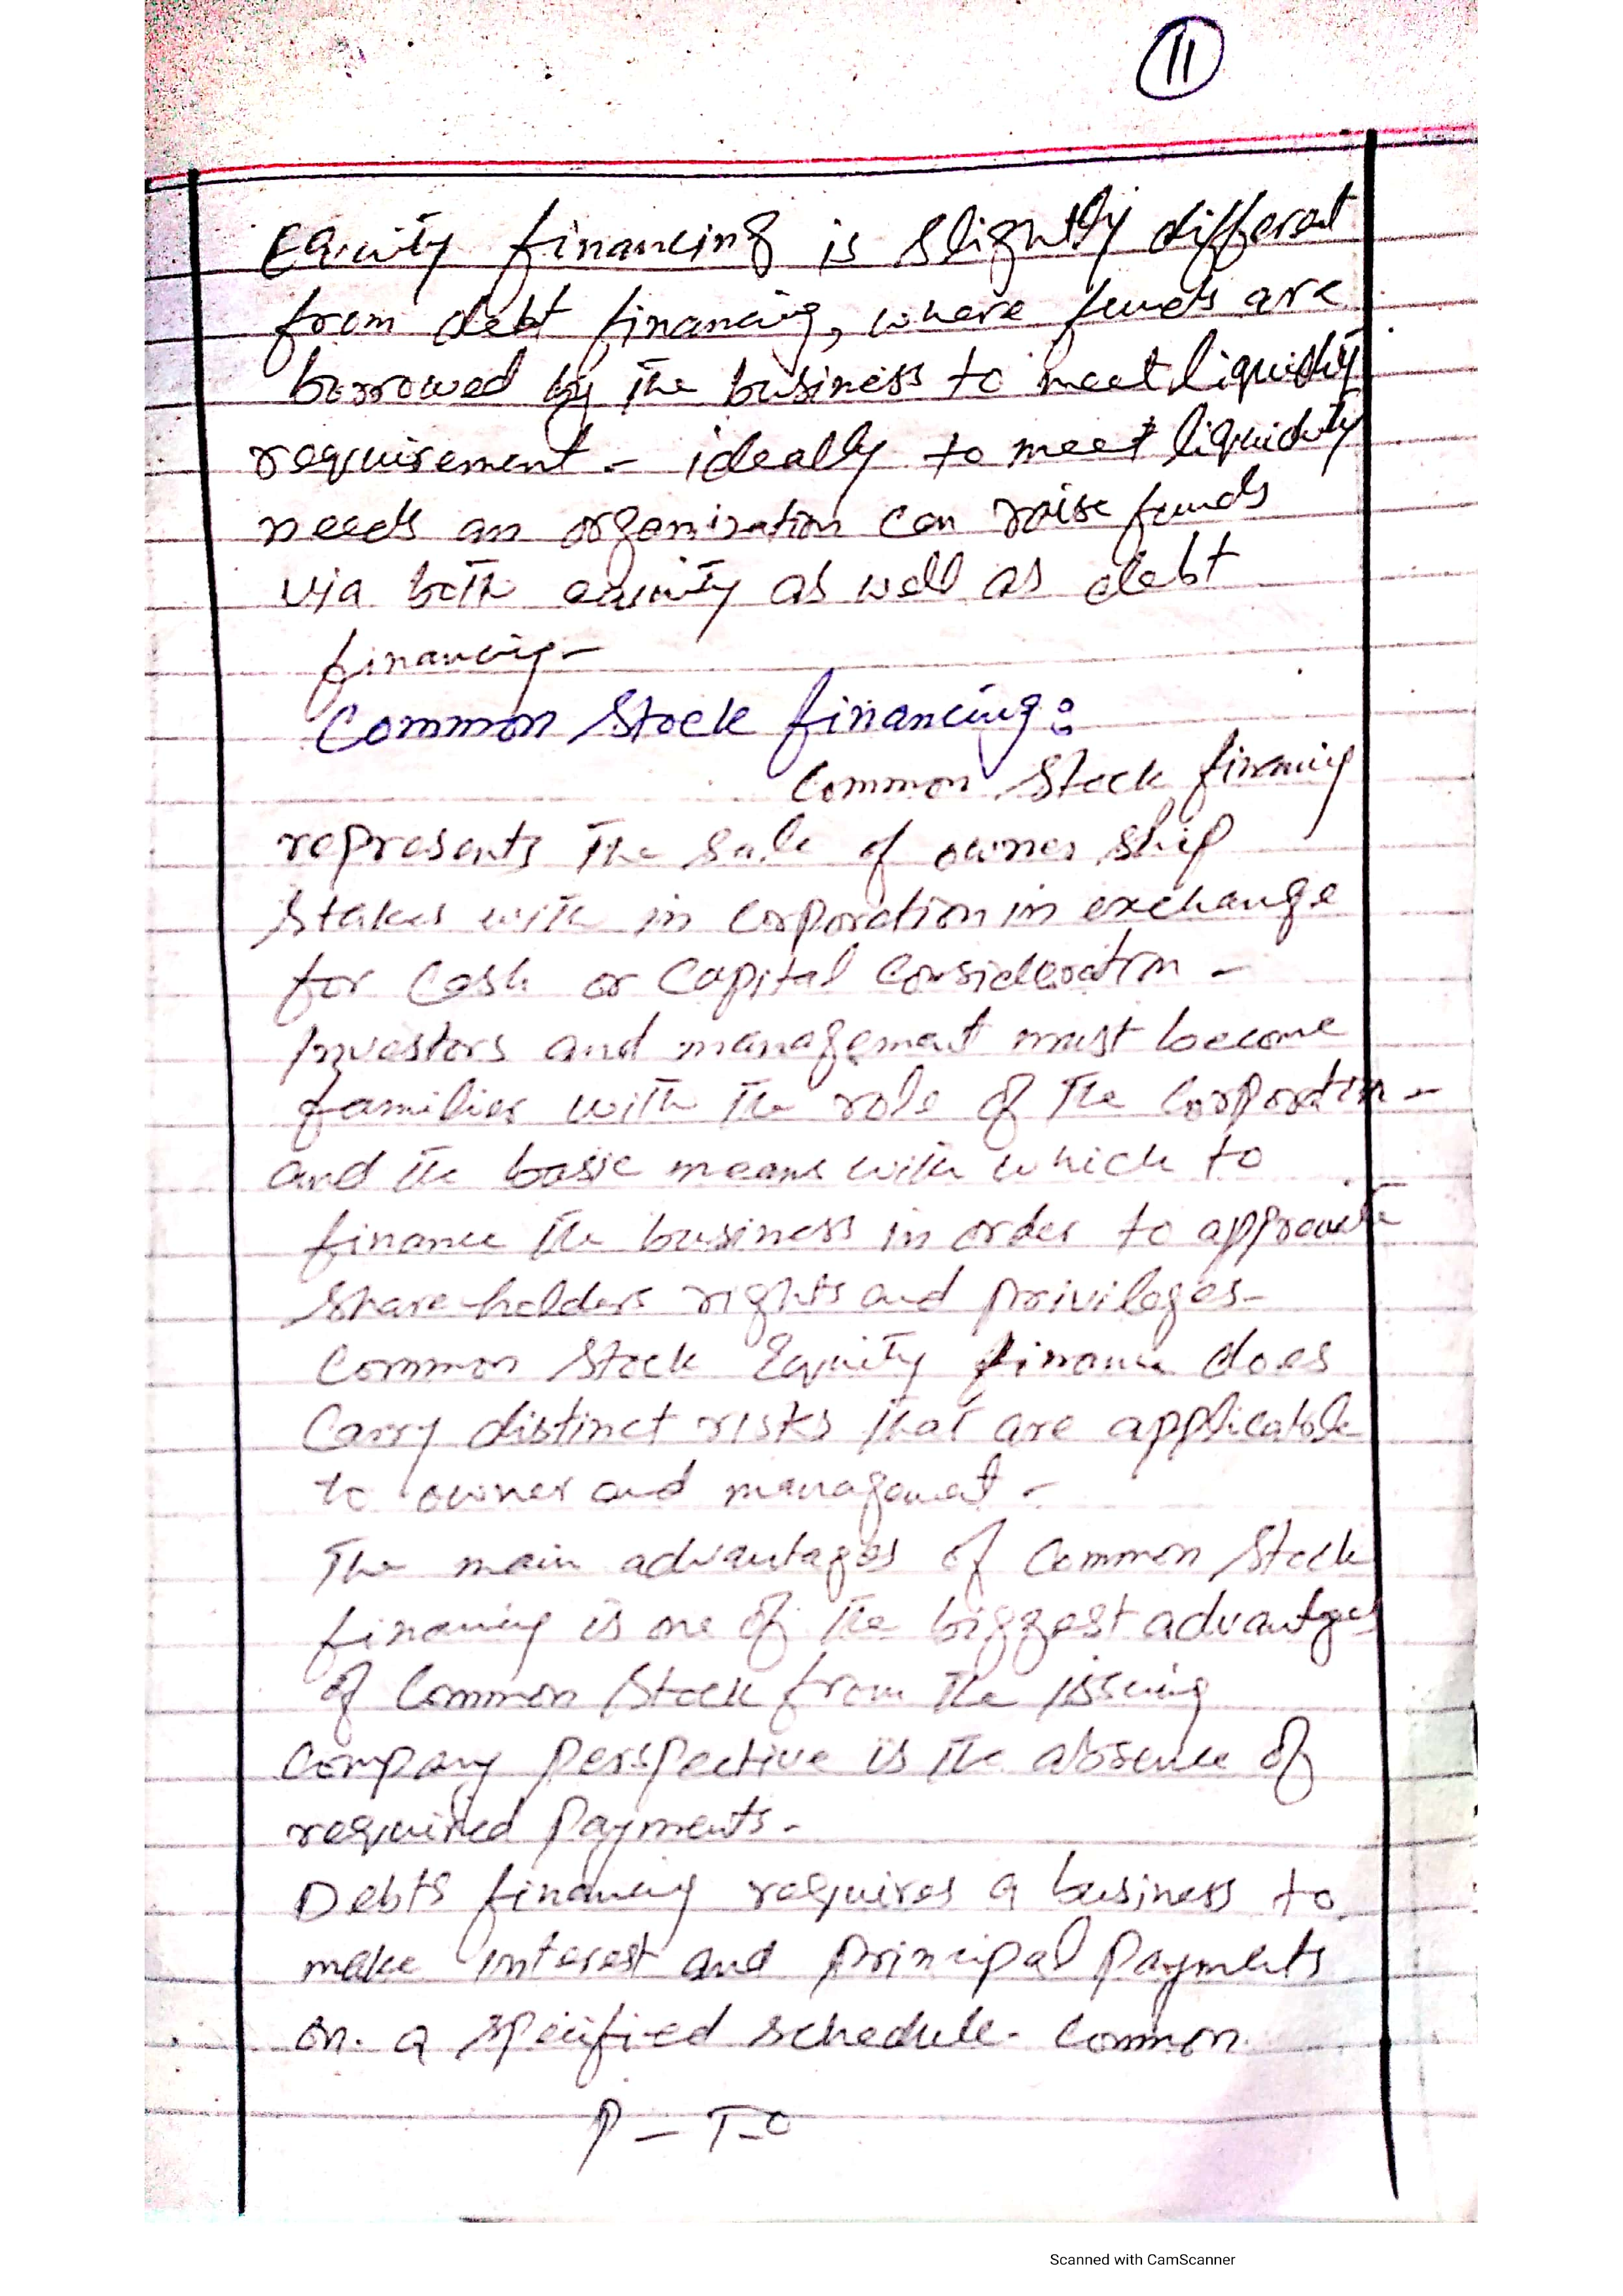 11
Equity financing is slightly different
from debt financing, where funds are
borrowed by the business to meet liquidity
requirement - ideally to meet liquidity
needs an organization can raise funds
via both equity as well as debt
financing -
Common Stock financing:
Common Stock financing
represents the sale of owner ship
stakes with in corporation in exchange
for Cash or Capital Consideration -
Investors and management must become
familier with the role of the Corporation -
and the basic means with which to
finance the business in order to
share-holders rights and privileges -
Common Stock Equity finance does
Carry distinct risks that are applicable
to owner and management -
The main advantages of Common Stock
financing is one of the biggest advantges
of Common Stock from the issuing
Company perspective is the absence of
required payments -
Debts financing requires a business to
make interest and principal payments
on a specified schedule - Common
P - T-O
Scanned with CamScanner